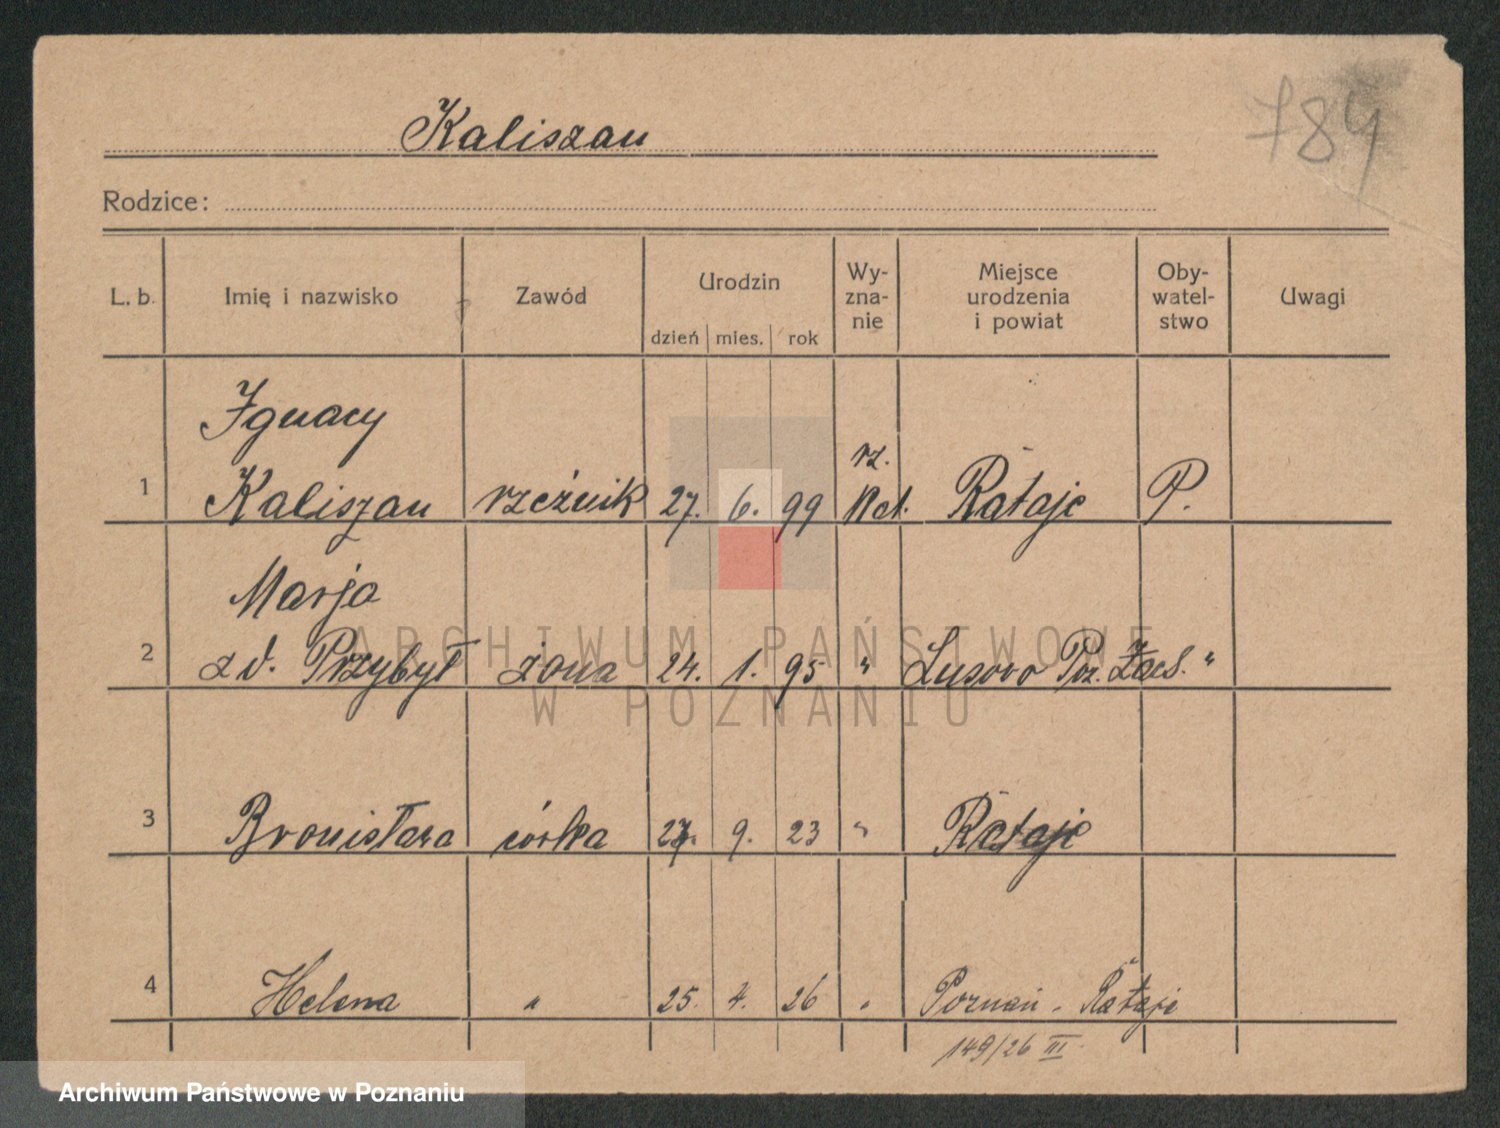 784
Kaliszan
Rodzice:
L. b. Imię i nazwisko Zawód Urodzin Wy-zna-nie Miejsce urodzenia i powiat Oby-watel-stwo Uwagi
dzień mies. rok
Ignacy
rz.
1 Kaliszan rzeźnik 27. 6. 99 Kat. Rataje P.
Marja
2 zd. Przybył żona 24. 1. 95 " Lusowo Poz. Zach. "
3 Bronisława córka 27. 9. 23 " Rataje
4 Helena " 25. 4. 26 " Poznań - Rataje
149/26 III.
ARCHIWUM PAŃSTWOWE
W POZNANIU
Archiwum Państwowe w Poznaniu